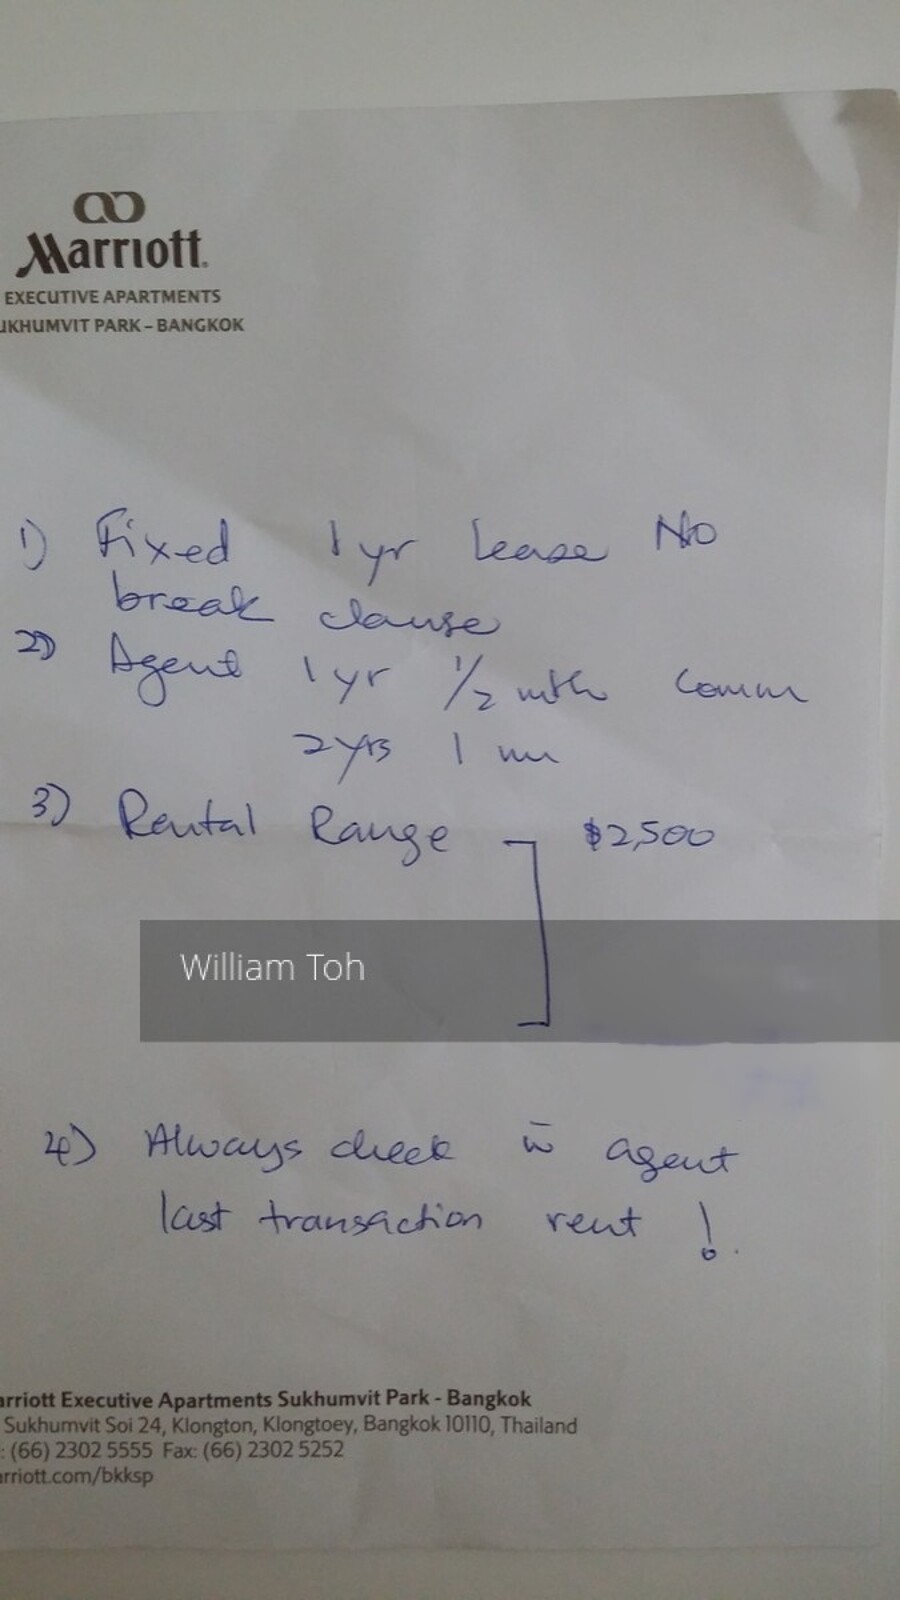 Marriott
EXECUTIVE APARTMENTS
UKHUMVIT PARK – BANGKOK
1) Fixed 1 yr lease No
break clause
2) Agent 1 yr 1/2 mth comm
2 yrs 1 m
3) Rental Range $2,500
William Toh
4) Always check w agent
last transaction rent !
arriott Executive Apartments Sukhumvit Park - Bangkok
Sukhumvit Soi 24, Klongton, Klongtoey, Bangkok 10110, Thailand
: (66) 2302 5555 Fax: (66) 2302 5252
arriott.com/bkksp